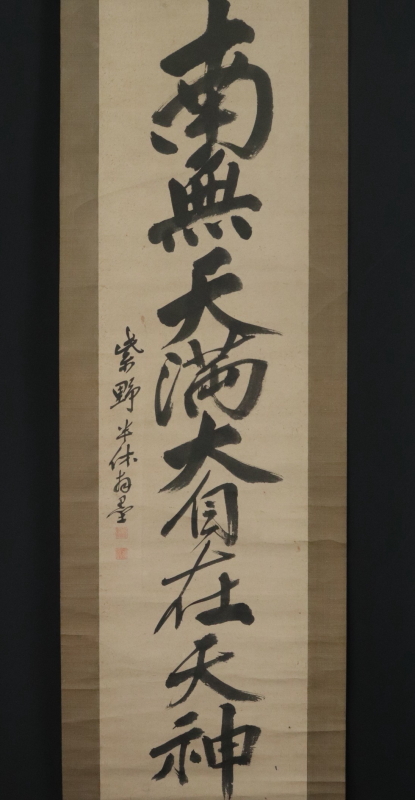 南無天満大自在天神
紫野半休